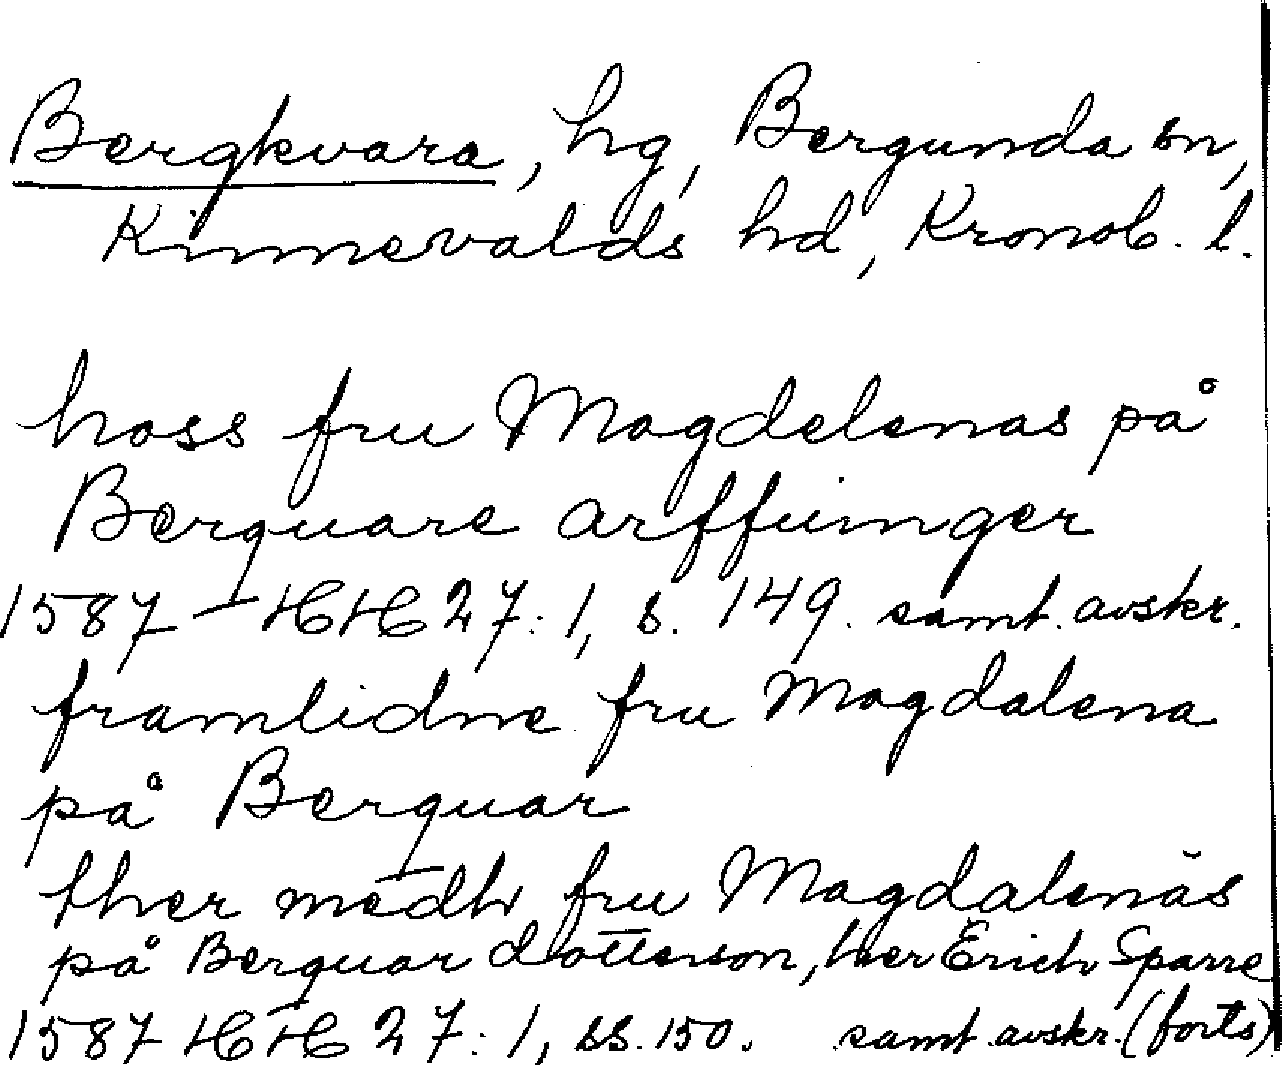 Bergkvara, hg, Bergunda sn,
Kinnevalds hd, Kronob. l.
hoss fru Magdelenas på
Berquare arffuinger
1587 HH 27:1, s. 149. samt. avskr.
framlidne fru Magdalena
på Berquar
ther medh fru Magdalenäs
på Berquar dotterson, her Erich Sparre
1587 HH 27:1, ss. 150. samt. avskr. (forts)